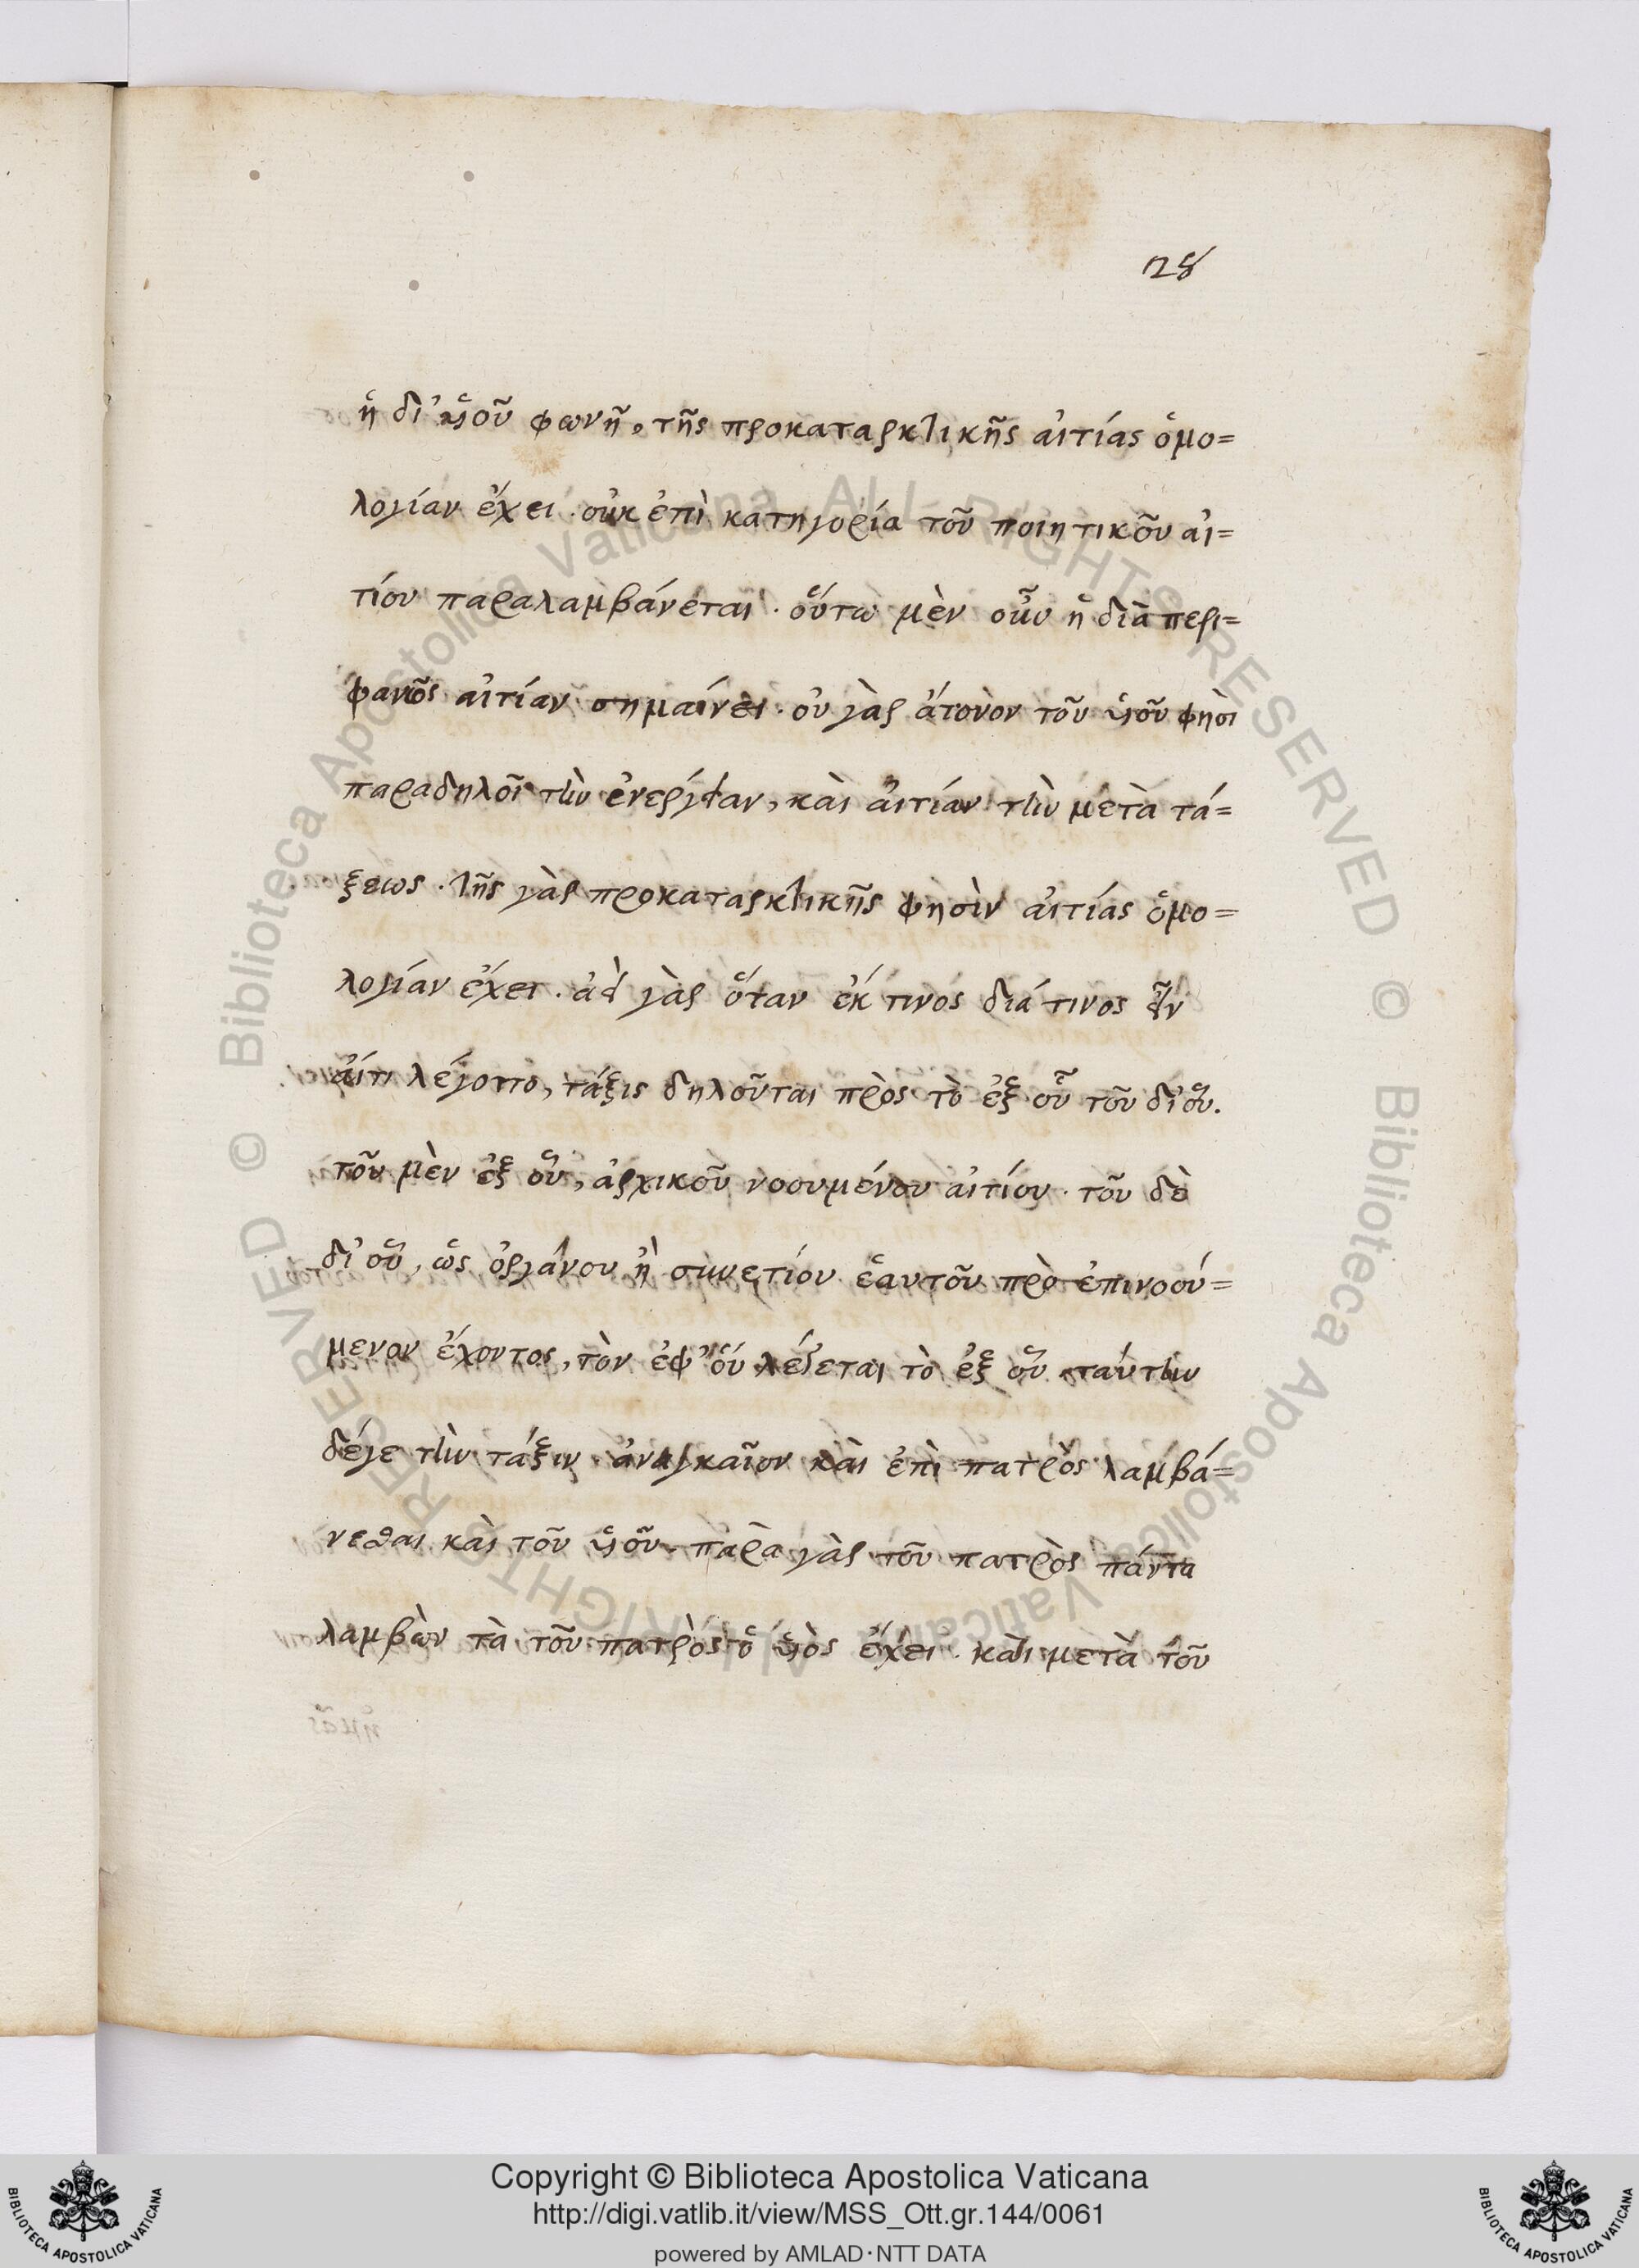 28
ἡ δι' υἱοῦ φωνῆ, τῆς προκαταρκτικῆς αἰτίας ὁμο=
λογίαν ἔχει. οὐκ ἐπὶ κατηγορία τοῦ ποιητικοῦ αἰ=
τίου παραλαμβάνεται. οὕτω μὲν οὖν ἡ διὰ περι=
φανῶς αἰτίαν σημαίνει. οὐ γὰρ ἄτονον τοῦ υἱοῦ φησι
παραδηλοῖ τὴν ἐνεργείαν, καὶ αἰτίαν τὴν μετὰ τά=
ξεως. τῆς γὰρ προκαταρκτικῆς φησὶν αἰτίας ὁμο=
λογίαν ἔχει. ἀεὶ γὰρ ὅταν ἐκ τινος διά τινος
λέγοιτο, τάξις δηλοῦται πρὸς τὸ ἐξ οὗ τοῦ δι' οὗ.
τοῦ μὲν ἐξ οὗ, ἀρχικοῦ νοουμένου αἰτίου. τοῦ δὲ
δι' οὗ, ὡς ὀργάνου ἢ συνετίου ἑαυτοῦ πρὸ ἐπινοού=
μενον ἔχοντος, τὸν ἐφ' οὗ λέγεται τὸ ἐξ οὗ. ταύτην
δέγε τὴν τάξιν ἀναγκαῖον καὶ ἐπὶ πατρὸς λαμβά=
νεσθαι καὶ τοῦ υἱοῦ. παρὰ γὰρ τοῦ πατρὸς πάντα
λαμβὼν τὰ τοῦ πατρὸς ὁ υἱὸς ἔχει. καὶ μετὰ τοῦ
Copyright © Biblioteca Apostolica Vaticana
http://digi.vatlib.it/view/MSS_Ott.gr.144/0061
powered by AMLAD·NTT DATA
BIBLIOTECA APOSTOLICA VATICANA
BIBLIOTECA APOSTOLICA VATICANA
© Biblioteca Apostolica Vaticana ALL RIGHTS RESERVED © Biblioteca Apostolica Vaticana ALL RIGHTS RESERVED